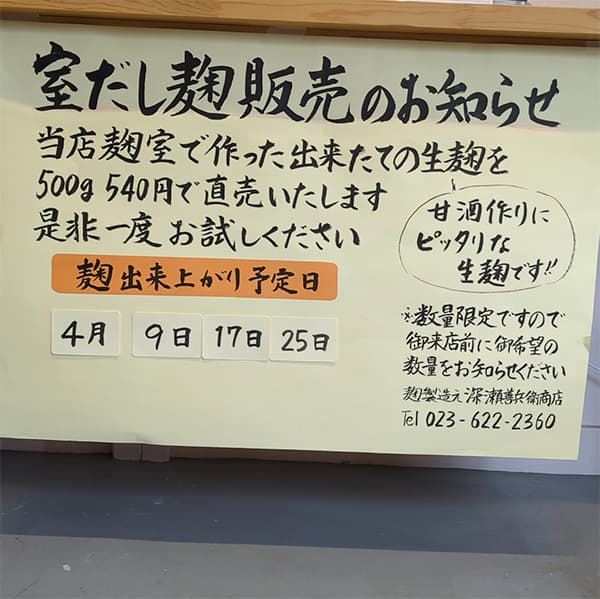 室だし麹販売のお知らせ
当店麹室で作った出来たての生麹を
500g 540円で直売いたします
是非一度お試しください
甘酒作りに
ピッタリな
生麹です!!
麹出来上がり予定日
4月 9日 17日 25日
※数量限定ですので
御来店前に御希望の
数量をお知らせください
麹製造元 深瀬善兵衛商店
Tel 023-622-2360